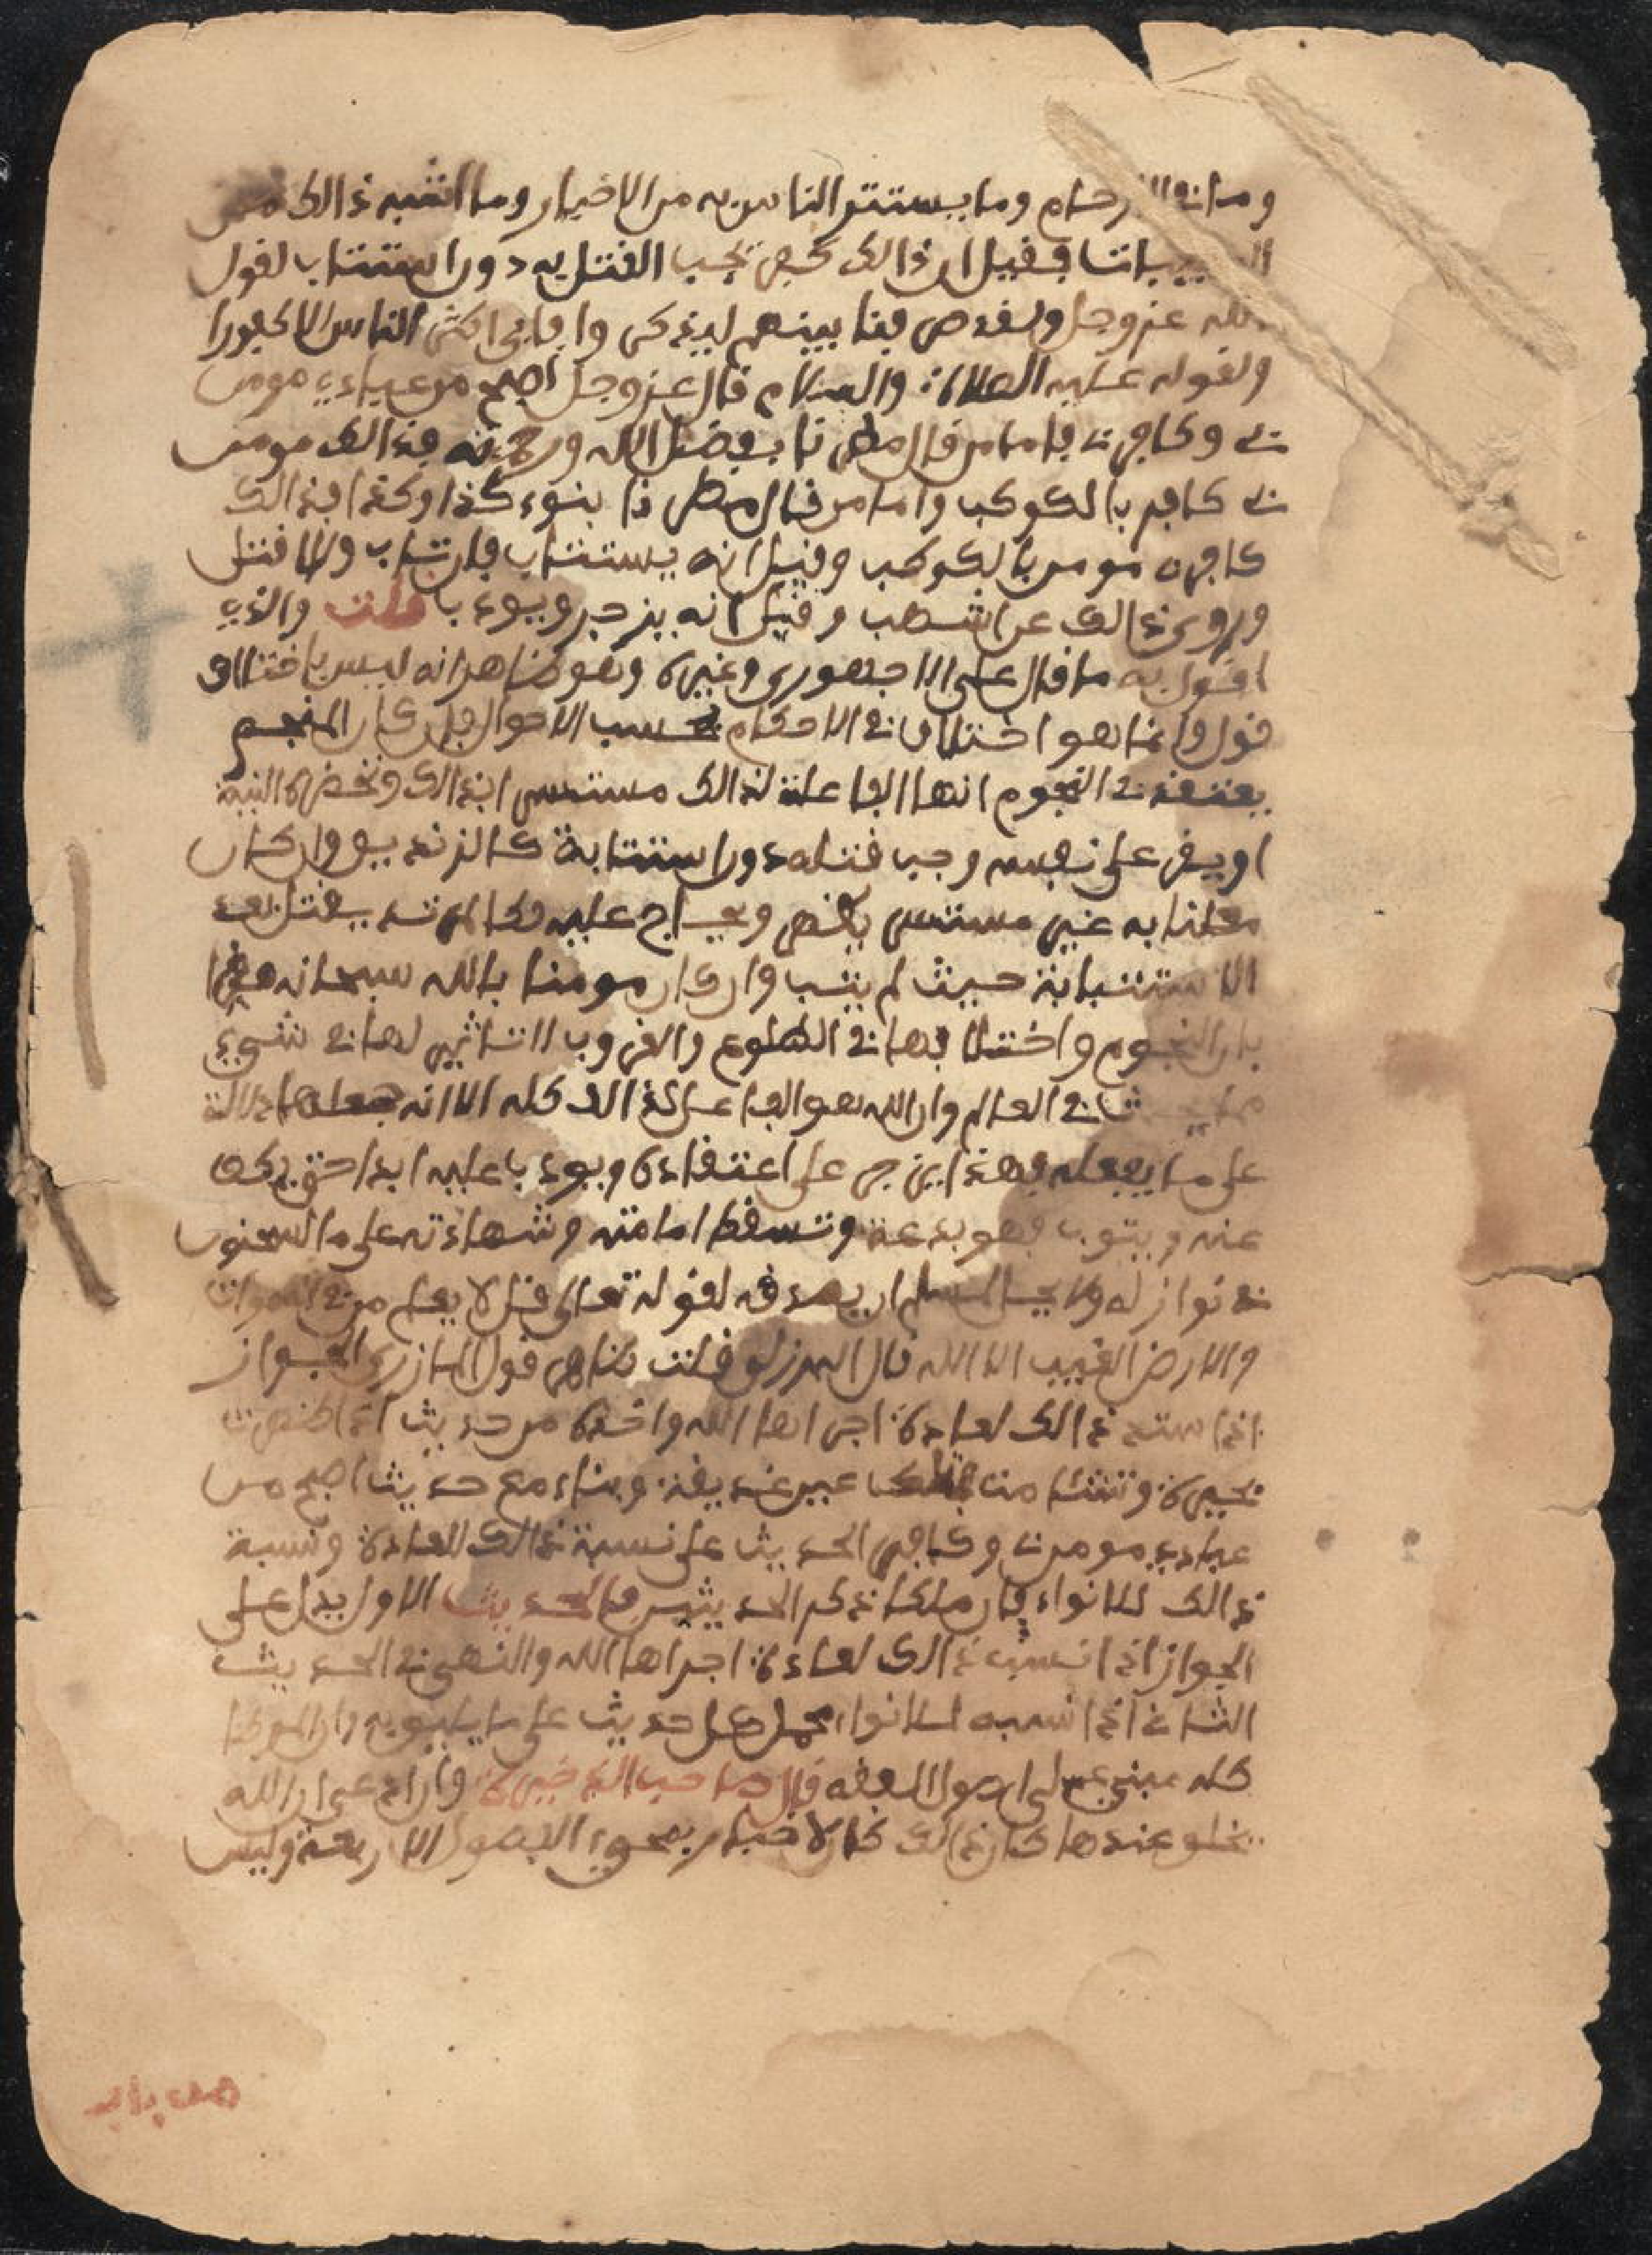 وما في الارحام وما يستتر الناس به من الاخبار وما اشبه ذالك من
المغيبات فقيل ان ذالك كفر يجب القتل به دون استتتاب لقول
الله عز وجل ولقد صرفنا بينهم ليذكروا فابى اكثر الناس الا كفورا
ولقوله عليه الصلاة والسلام قال عز وجل أصبح من عبادي مومن
بي وكافر بي فاما من قال مطرنا بفضل الله ورحمته فذالك مومن
بي كافر بالكوكب واما من قال مطرنا بنوء كذا وكذا فذالك
كافر بي مومن بالكوكب وقيل انه يستتاب فان تاب والا قتل
وروي ذالك عن اشهب وقيل انه يزجر ويودب قلت والذي
اقول به ما قال على الاجهوري وغيره وهو ظاهر انه ليس باختلاف
قول وانما هو اختلاف في الاحكام بحسب الاحوال فان كان المنجم
يعتقد في النجوم انها الفاعلة لذالك مستسرا بذالك وتحضره البينة
او يقر على نفسه وجب قتله دون استتابة كالزنديق وان كان
معلنا به غير مستسر يظهر ويحاج عليه فكالمرتد يقتل بعد
الاستتابة حيث لم يتب وان كان مومنا بالله سبحانه مقرا
بان النجوم واختلافها في الطلوع والغروب لا تاثير لها في شيء
مما يحدث في العالم وان الله هو الفاعل لذالك كله الا انه جعلها دلالة
على ما يفعله فهذا يزجر على اعتقاده ويودب عليه ابدا حتى يكف
عنه ويتوب فهو بدعة وتسقط امامته وشهادته على ما لسحنون
في نوازله ولا يحل لمسلم ان يصدقه لقوله تعالى قل لا يعلم من في السموات
والارض الغيب الا الله قال البرزلي قلت ظاهر قول المازري الجواز
اذا استند ذالك لعادة اجراها الله واخذه من حديث اذا ظهرت
بحيرة وتشامت فتلك عين غديقة وبناء مع حديث اصبح من
عبادي مومن بي وكافر الحديث على نسبة ذالك للعادة ونسبة
ذالك للانواء فان ملكا ذكر الحديثين فالحديث الاول يدل على
الجواز اذا نسب ذالك لعادة اجراها الله والنهي في الحديث
الثاني اذا نسبه للانواء فحمل كل حديث على ما يليق به وان الموطا
كله مبني على اصول الفقه قال صاحب الذخيرة وان ادعى ان الله
يخلق عندها كان ذالك كالاخبار بصحو الفصول الاربعة وليس